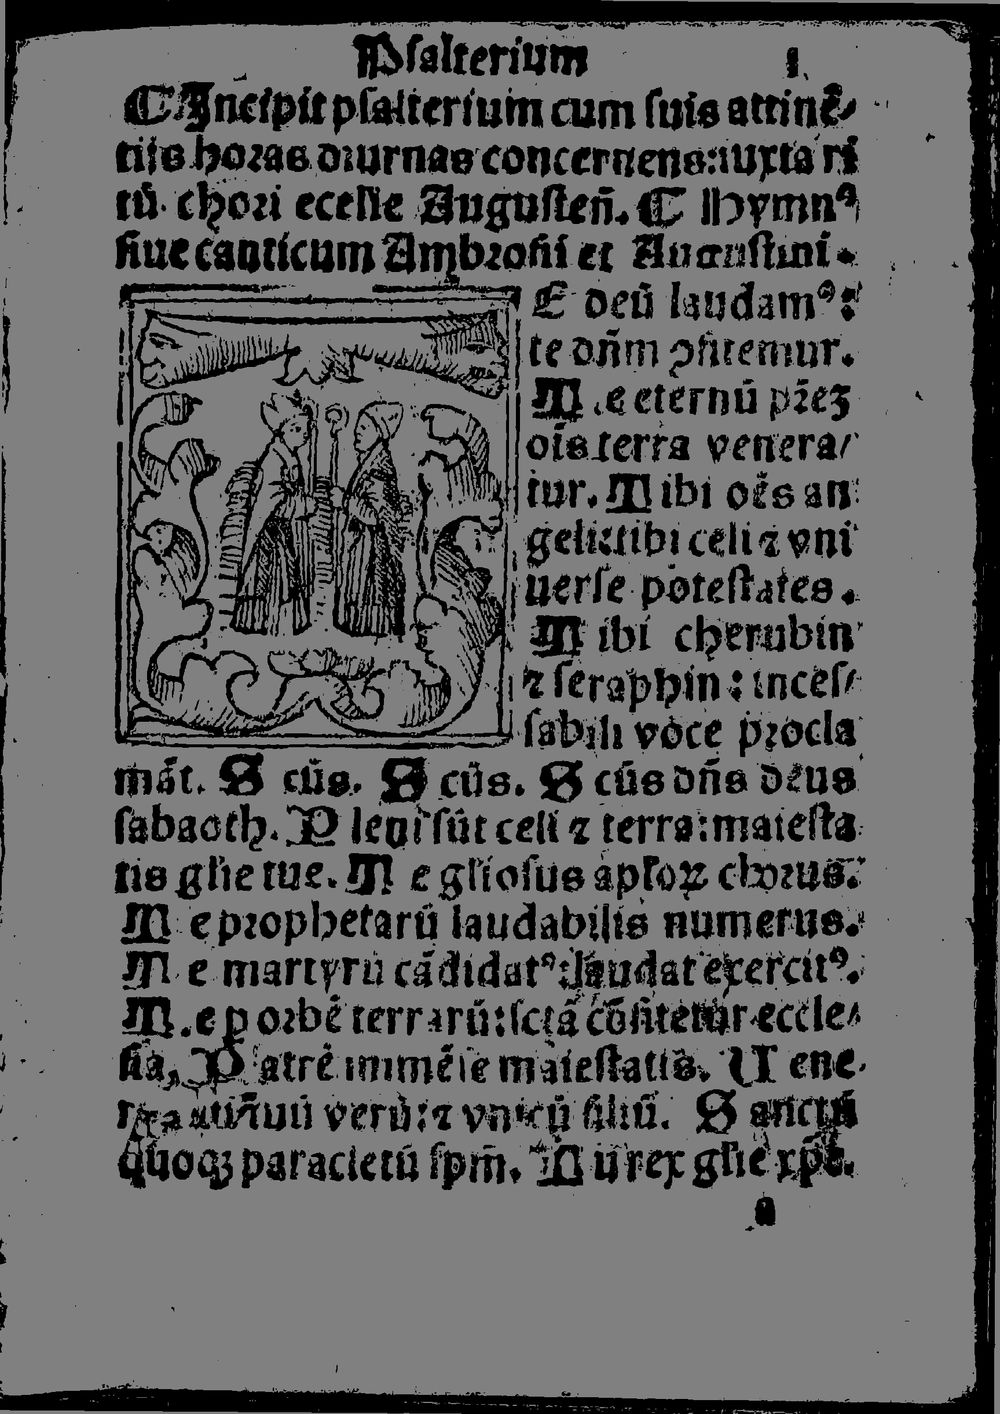 Psalterium 1
¶ Incipit psalterium cum suis attinē/
tijs horas diurnas concernens: iuxta ri
tū chori ecclie Augusteñ. ¶ Hymnꝰ
siue canticum Ambrosii et Augustini.
E deū laudamꝰ:
te dn̄m ꝯfitemur.
Te eternū pr̄eꝫ
oīs terra venera/
tur. Tibi oēs an
geli: tibi celi ⁊ vni
uerse potestates.
Tibi cherubin
⁊ seraphin: inces/
sabili voce procla
māt. Scūs. Scūs. Scūs dn̄s deus
sabaoth. Pleni sūt celi ⁊ terra: maiesta
tis gl̄ie tue. Te gl̄iosus apl̄oꝝ chorus.
Te prophetarū laudabilis numerus.
Te martyrū cādidatꝰ: laudat exercitꝰ.
Te p orbē terrarū: sctā cōfitetur eccle/
sia, Patrē immēse maiestatis. Uene
verū: ⁊ vnicū filiū. Sanctū
quoqꝫ paracletū spm̄. Tu rex gl̄ie xp̄e.
a